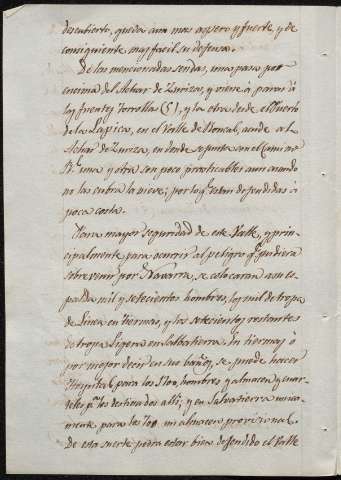 descubierto, queda aun mas aspero y fuerte, y de
consiguiente mas facil su defensa.
De las mencionadas sendas, una pasa por
encima del Achar de Zuriza, y viene á parar á
las fuentes Forrollas (S), y la otra desde el Puerto
de la Lapiza, en el Valle de Roncal, acude a l
Achar de Zuriza, en donde se junta con el Camino
Rl. una y otra son poco practicables aun quando
no las cubra la nieve; por lo qe. seran defendidas á
poca costa.
Para mayor seguridad de este Valle, y prin-
cipalmente para ocurrir al peligro qe. pudiera
sobrevenir por Navarra, se colocaran a su es-
palda mil y setecientos hombres, los mil de tropa
de Linea en Tiermas, y los setecientos restantes
de tropa Ligera en Salbatierra. En Tiermas, ó
por mejor decir en sus baños, se puede hacer
Hospital para los 1700, hombres y almacen y quar-
teles pa. los destinados alli; y en Salvatierra unica-
mente para los 700, un almacen provisional.
De esta suerte podra estar bien defendido el Valle